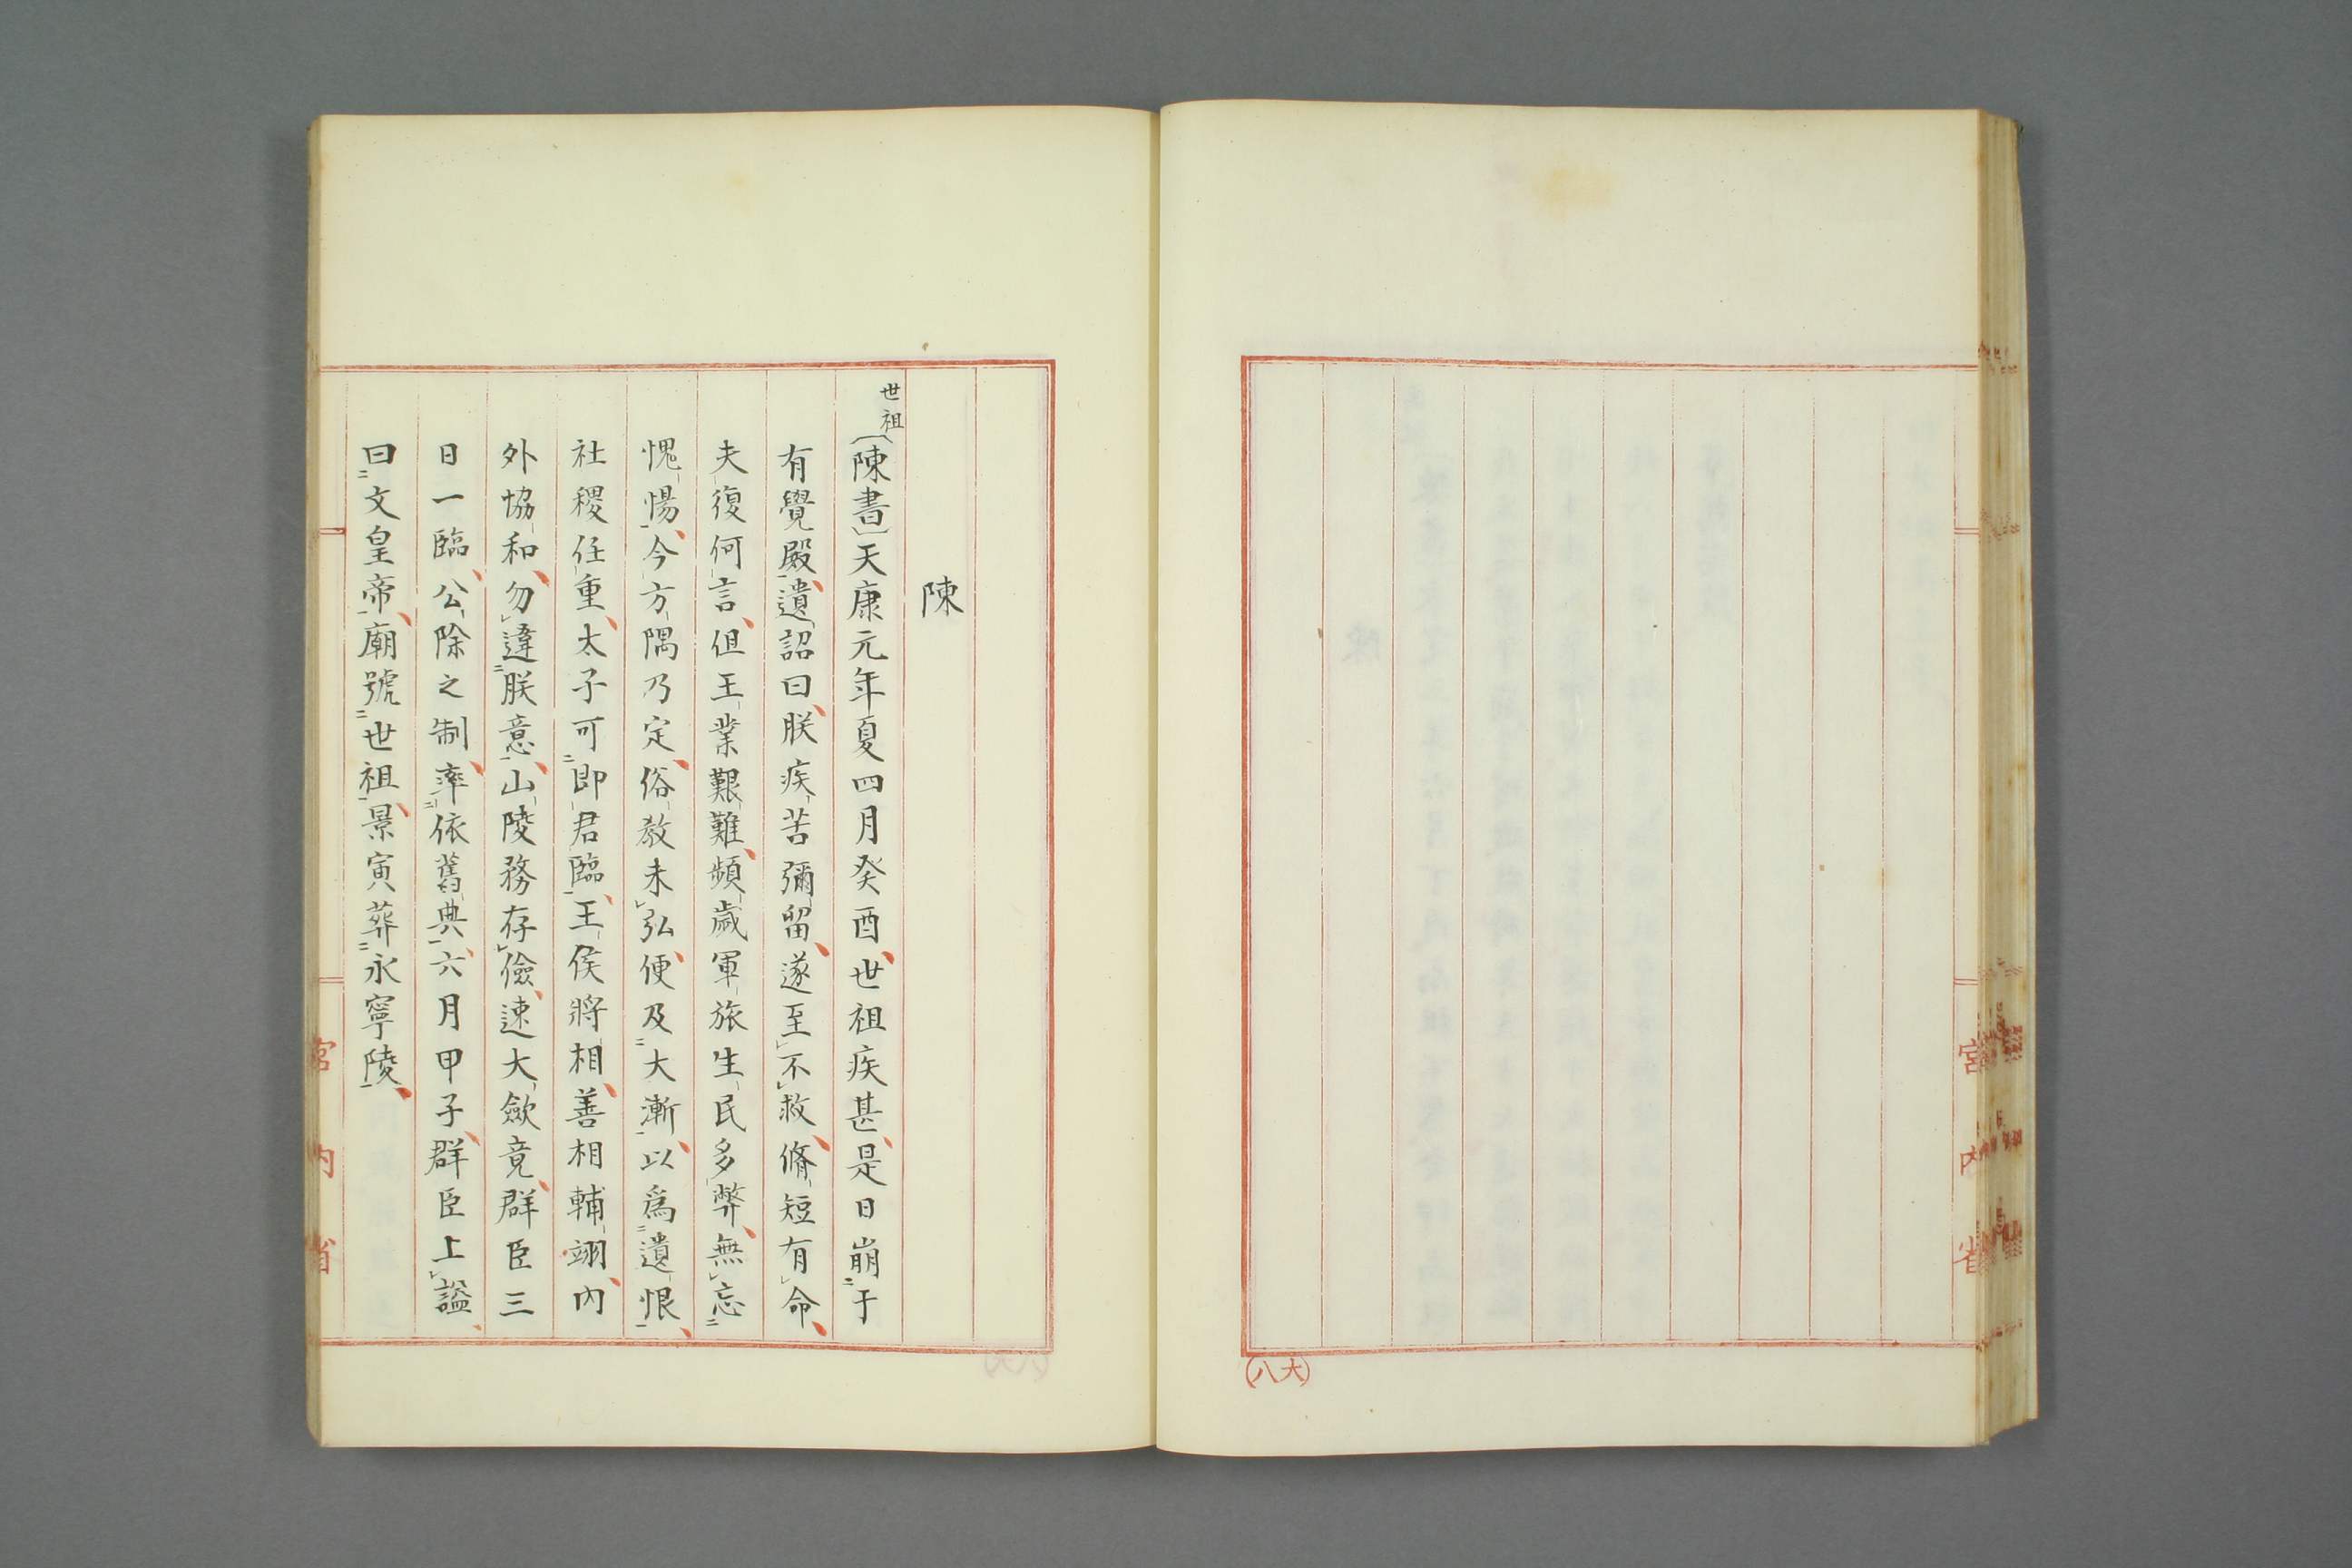 陳
世祖
〔陳書〕天康元年夏四月癸酉世祖疾甚是日崩于
有覺殿遺詔曰朕疾苦彌留遂至不救脩短有命
夫復何言但王業艱難頻歲軍旅生民多弊無忘
愧惕今方隅乃定俗教未弘便及大漸以爲遺恨
社稷任重太子可即君臨王侯將相善相輔翊內
外協和勿違朕意山陵務存儉速大斂竟群臣三
日一臨公除之制率依舊典六月甲子群臣上謚
曰文皇帝廟號世祖景寅葬永寧陵
宮內省
(大八)
宮內省